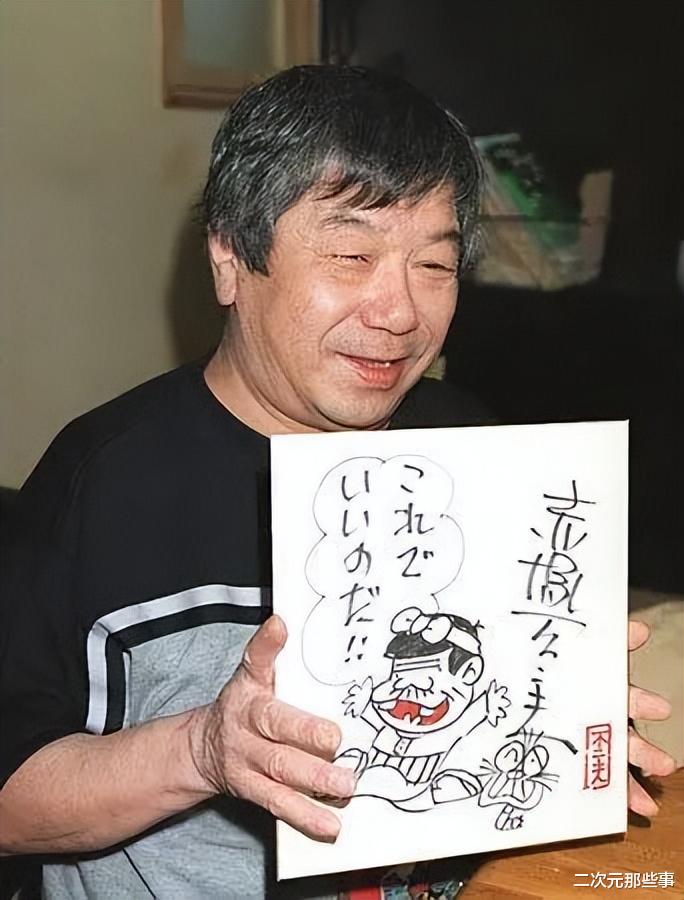 これで
いいのだ!!
赤塚不二夫
不二夫
二次元那些事